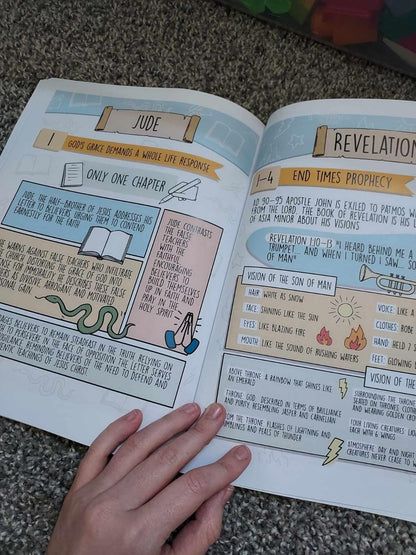 JUDE
1 GOD'S GRACE DEMANDS A WHOLE LIFE RESPONSE
ONLY ONE CHAPTER
JUDE, THE HALF-BROTHER OF JESUS ADDRESSES HIS
LETTER TO BELIEVERS URGING THEM TO CONTEND
EARNESTLY FOR THE FAITH
JUDE CONTRASTS
THE
TEACHERS
WITH THE
FAITHFUL,
ENCOURAGING
BELIEVERS TO
BUILD THEMSELVES
UP IN FAITH AND
PRAY IN THE
HOLY SPIRIT
WARNS AGAINST FALSE TEACHERS WHO INFILTRATE
CHURCH DISTORTING THE GRACE OF GOD INTO
FOR IMMORALITY. HE DESCRIBES THESE FALSE
AS DIVISIVE, ARROGANT AND MOTIVATED
GAIN
BELIEVERS TO REMAIN STEADFAST IN THE TRUTH RELYING ON
TO PERSEVERE IN THE FACE OF OPPOSITION. THE LETTER SERVES
REMINDING BELIEVERS OF THE NEED TO DEFEND AND
TEACHINGS OF JESUS CHRIST
REVELATION
1-4 END TIMES PROPHECY
AD 90-95 APOSTLE JOHN IS EXILED TO PATMOS
FROM THE LORD. THE BOOK OF REVELATION IS HIS
OF ASIA MINOR ABOUT HIS VISIONS
REVELATION 1:10-13 "I HEARD BEHIND ME A
TRUMPET... AND WHEN I TURNED I SAW...
OF MAN"
VISION OF THE SON OF MAN
HAIR: WHITE AS SNOW
FACE: SHINING LIKE THE SUN
EYES: LIKE BLAZING FIRE
MOUTH: LIKE THE SOUND OF RUSHING WATERS
VOICE: LIKE A
CLOTHES:
HAND: HELD 7
FEET: GLOWING
VISION OF THE
ABOVE THRONE: A RAINBOW THAT SHINES LIKE
AN EMERALD
THRONE: GOD, DESCRIBED IN TERMS OF BRILLIANCE
AND PURITY, RESEMBLING JASPER AND CARNELIAN
FROM THE THRONE: FLASHES OF LIGHTNING AND
RUMBLINGS AND PEALS OF THUNDER
SURROUNDING THE THRONE
SEATED ON THRONES, CLOTHED
AND WEARING GOLDEN
FOUR LIVING CREATURES:
EACH WITH 6 WINGS
ATMOSPHERE: DAY AND NIGHT
CREATURES NEVER CEASE TO